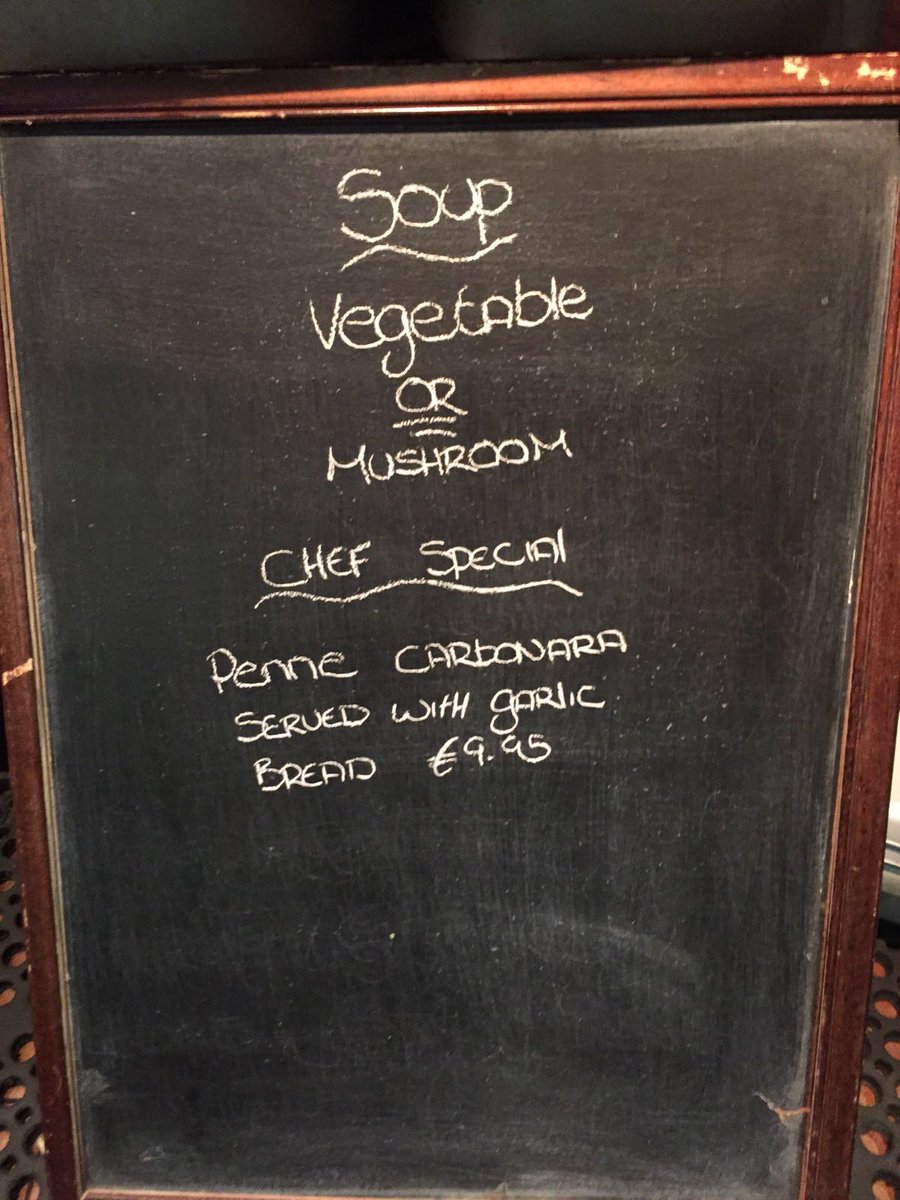 Soup
Vegetable
OR
MUSHROOM
CHEF SPECIAL
Penne CARBONARA
SERVED WITH GARLIC
BREAD €9.95